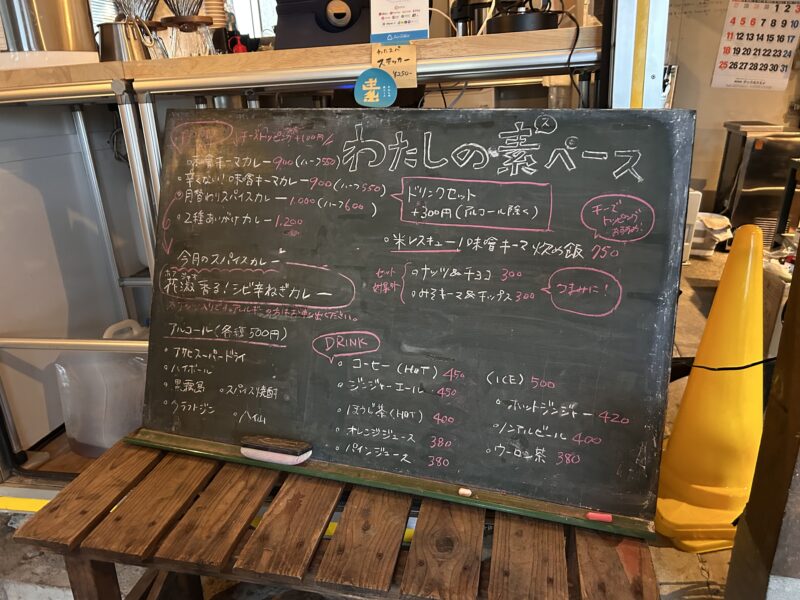 わたスパ
ステッカー
¥250-
FOOD
チーズトッピング +100円
わたしの素スペース
味噌キーマカレー 900(ハーフ550)
辛くない!味噌キーマカレー 900(ハーフ550)
月替わりスパイスカレー 1.000(ハーフ600)
2種あいがけカレー 1.200
ドリンクセット
+300円(アルコール除く)
米レスキュー!味噌キーマ炒め飯 750
チーズ
トッピング
おすすめ!
今月のスパイスカレー
花激香る!シビ辛ねぎカレー
セット
対象外
ナッツ&チョコ 300
みそキーマ&チップス 300
つまみに!
アルコール(各種500円)
アサヒスーパードライ
ハイボール
黒霧島
スパイス焼酎
クラフトジン
八仙
DRINK
コーヒー(HOT) 450
(ICE) 500
ジンジャーエール 450
ホットジンジャー 420
ほうじ茶(HOT) 400
ノンアルビール 400
オレンジジュース 380
ウーロン茶 380
パインジュース 380